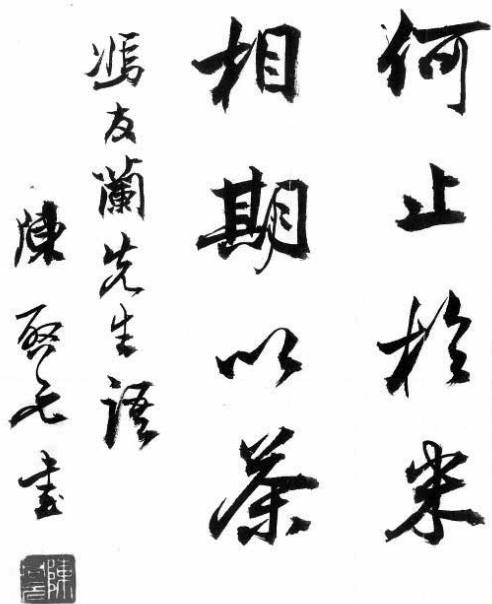 何止於米
相期以茶
馮友蘭先生語
陳書